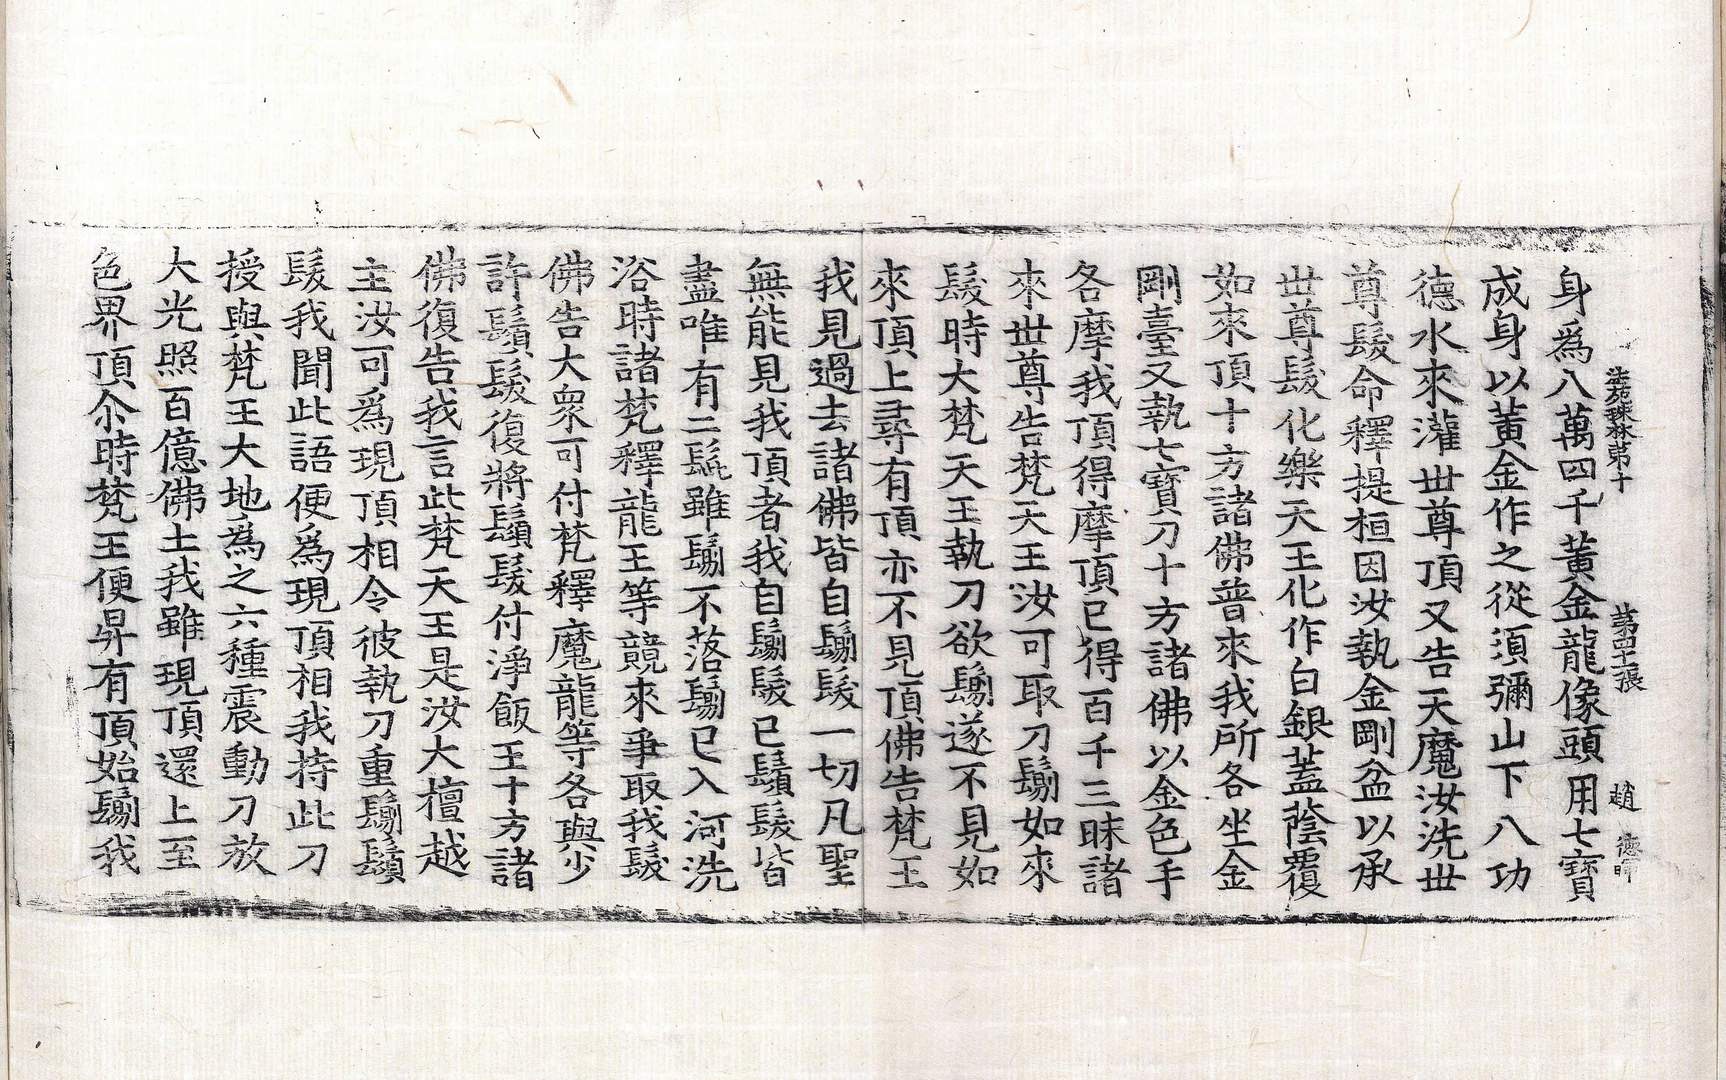 法苑珠林第十 第四十張 趙 德
身爲八萬四千黃金龍像頭用七寶
成身以黃金作之從須彌山下八功
德水來灌世尊頂又告天魔汝洗世
尊髮命釋提桓因汝執金剛盆以承
世尊髮化樂天王化作白銀蓋蔭覆
如來頂十方諸佛普來我所各坐金
剛臺又執七寶刀十方諸佛以金色手
各摩我頂得摩頂已得百千三昧諸
來世尊告梵天王汝可取刀鬀如來
髮時大梵天王執刀欲鬀遂不見如
來頂上尋有頂亦不見頂佛告梵王
我見過去諸佛皆自鬀髮一切凡聖
無能見我頂者我自鬀髮已鬚髮皆
盡唯有二髭雖鬀不落鬀已入河洗
浴時諸梵釋龍王等競來爭取我髮
佛告大衆可付梵釋魔龍等各與少
許鬚髮復將鬚髮付淨飯王十方諸
佛復告我言此梵天王是汝大檀越
主汝可爲現頂相令彼執刀重鬀鬚
髮我聞此語便爲現頂相我持此刀
授與梵王大地爲之六種震動刀放
大光照百億佛土我雖現頂還上至
色界頂尒時梵王便昇有頂始鬀我